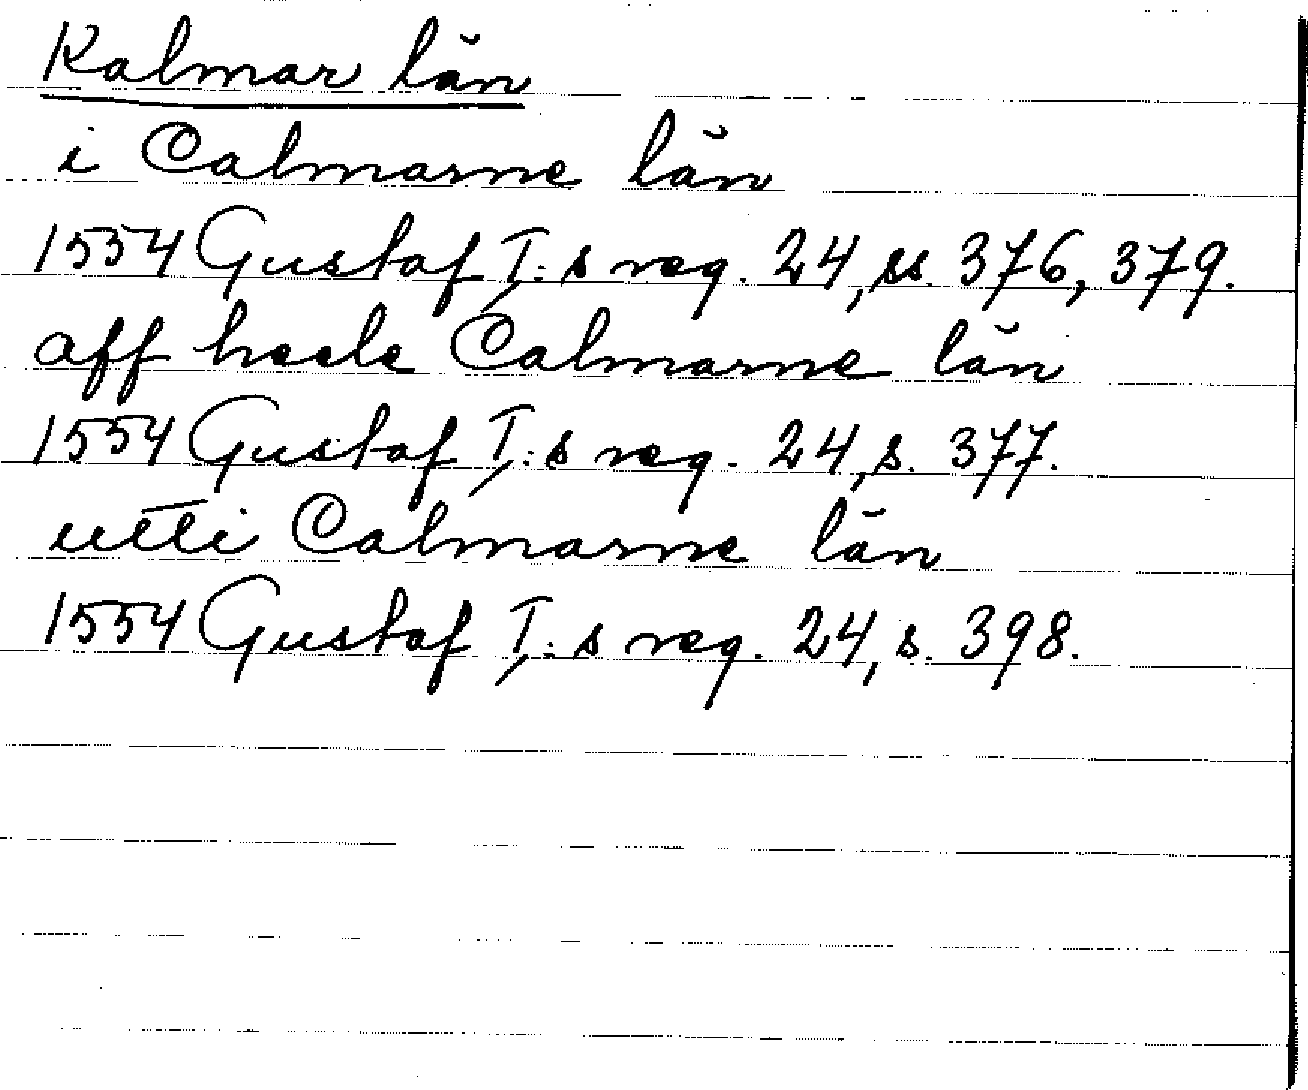 Kalmar län
i Calmarne län
1554 Gustaf I:s reg. 24, ss. 376, 379.
aff heele Calmarne län
1554 Gustaf I:s reg. 24, s. 377.
utti Calmarne län
1554 Gustaf I:s reg. 24, s. 398.